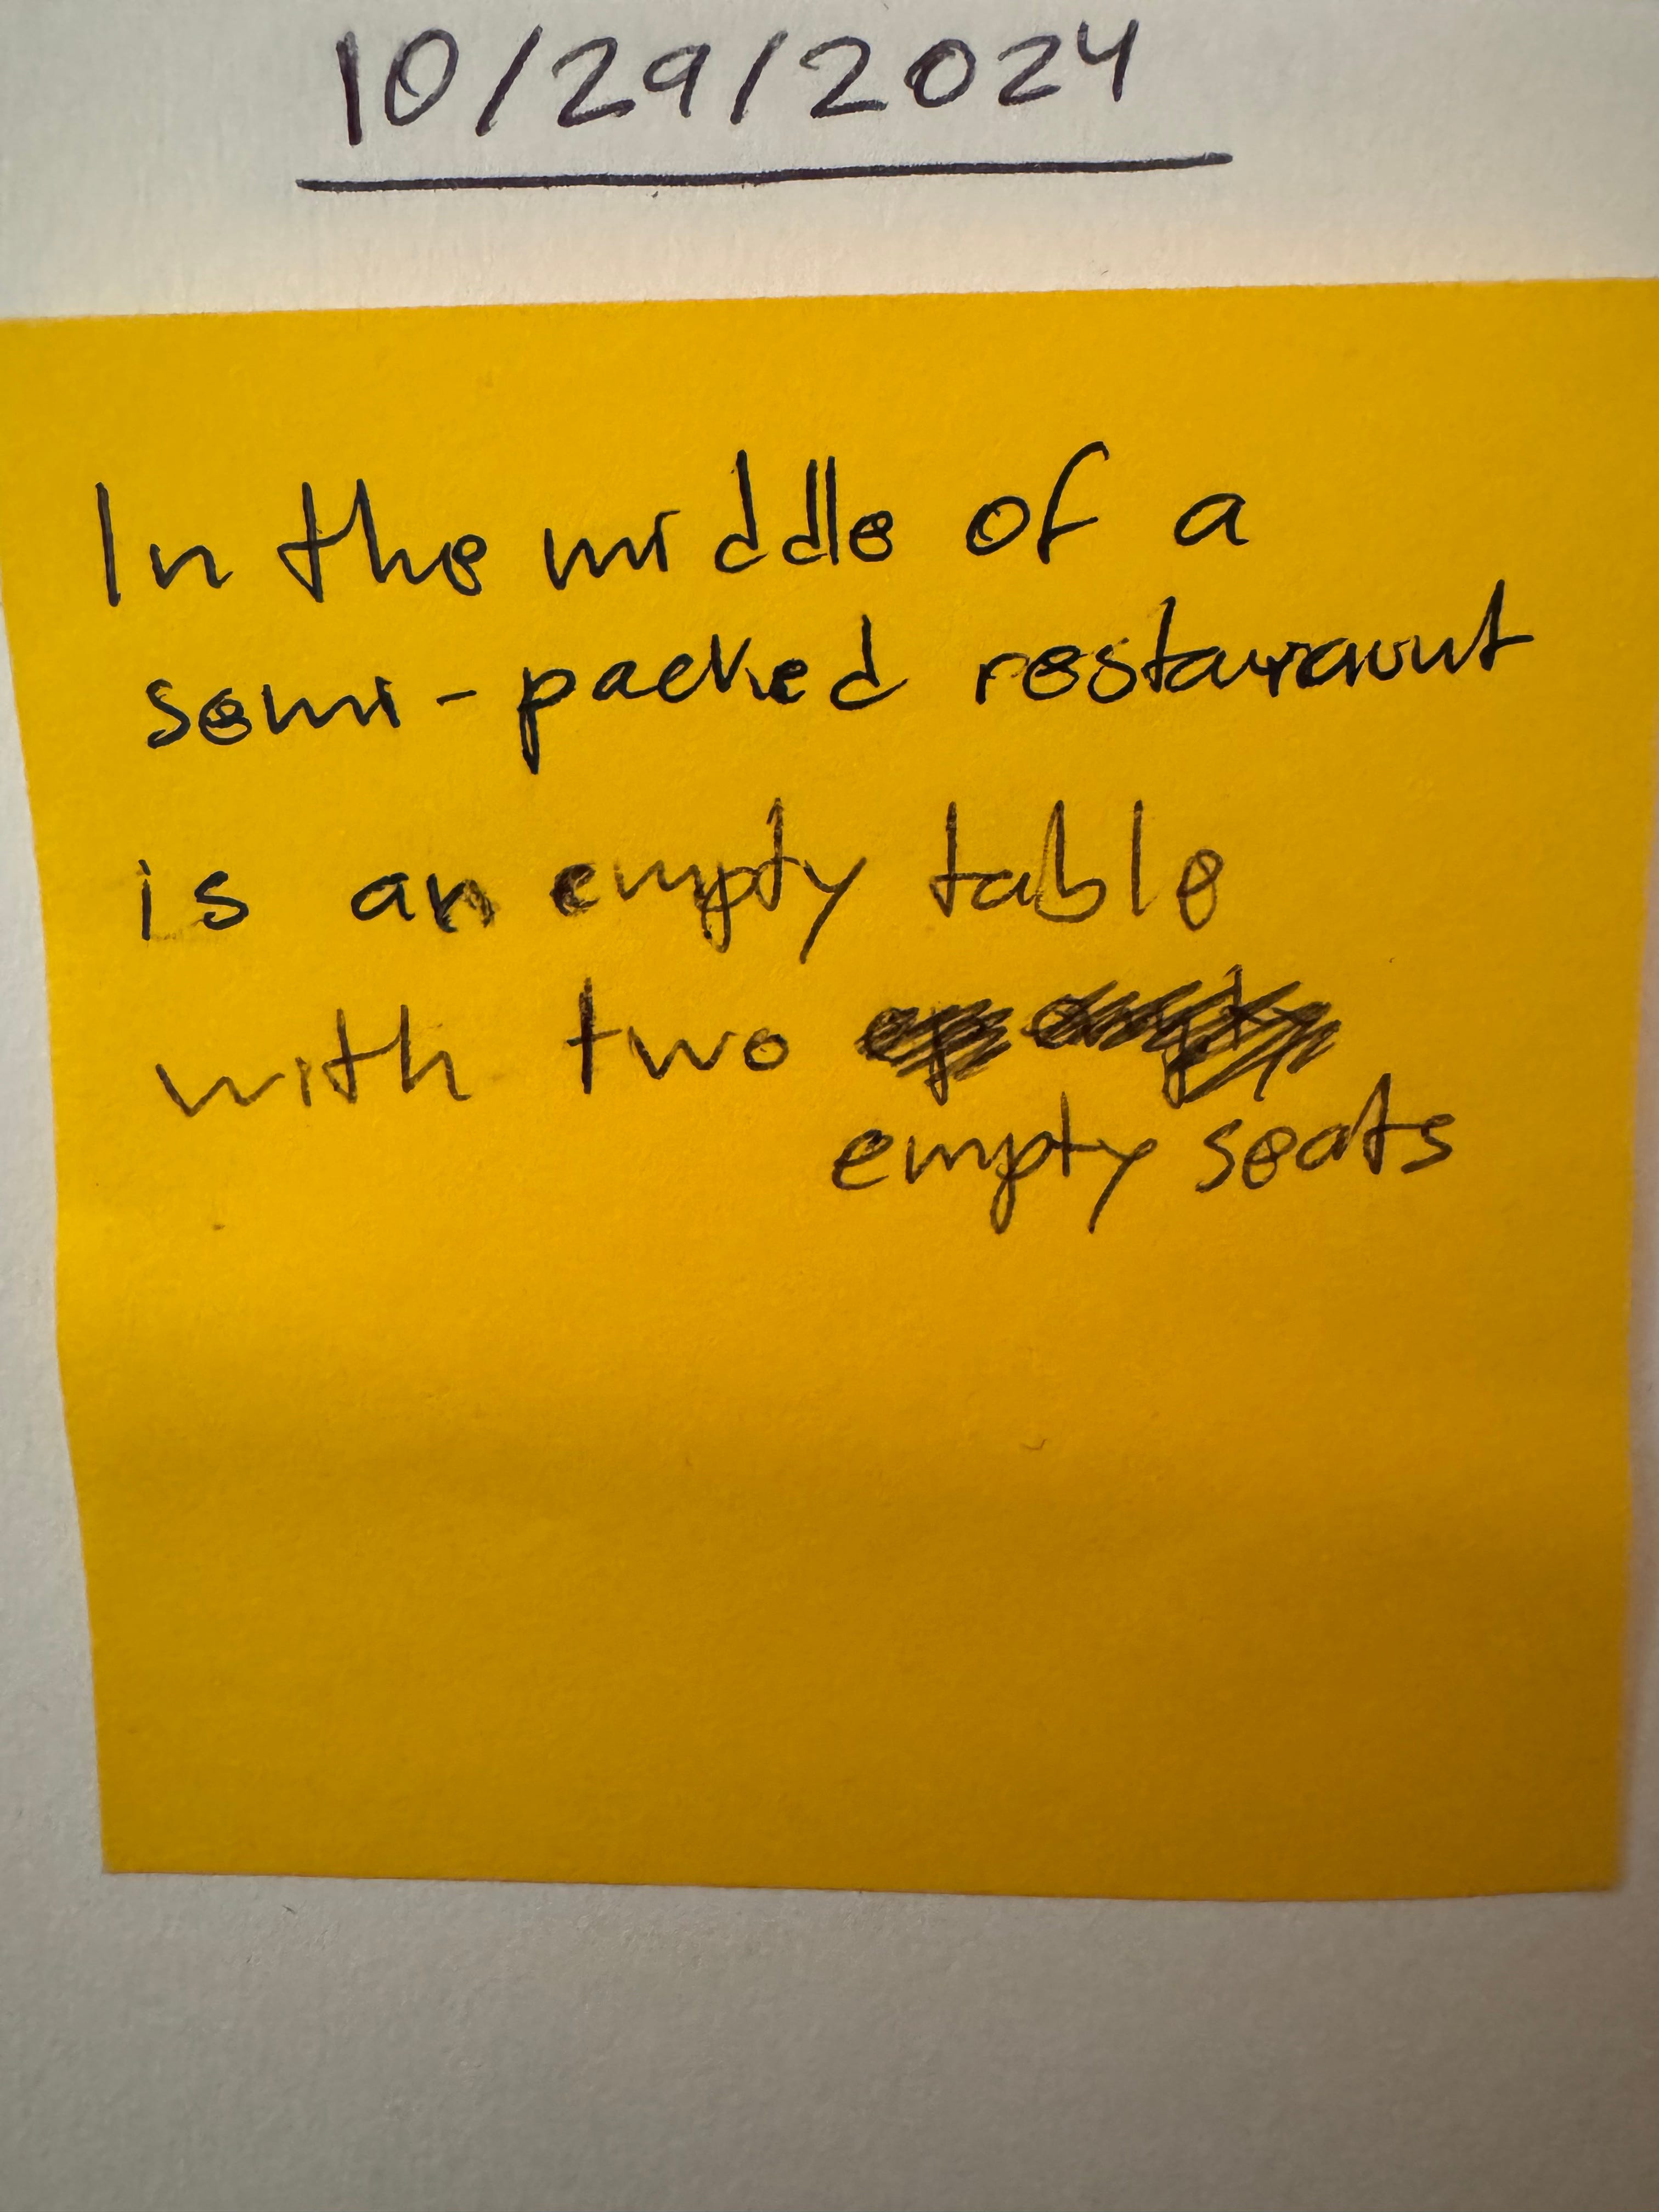 10/29/2024
In the middle of a
semi-packed restauraunt
is an empty table
with two
empty seats